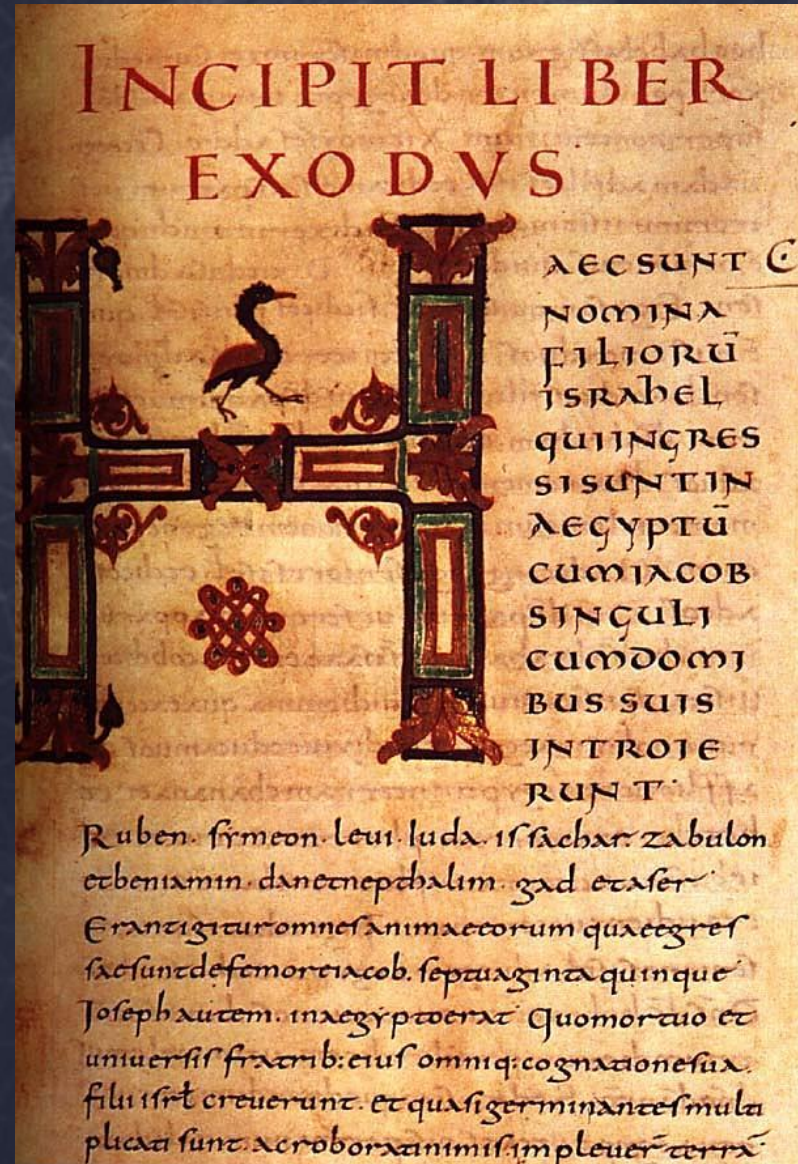 INCIPIT LIBER
EXODVS
HAEC SUNT C
NOMINA
FILIORŪ
ISRAhEL
QUI INGRES
SI SUNT IN
AEGYPTŪ
CUM IACOB
SINGULI
CUM DOMI
BUS SUIS
INTROIE
RUNT·
Ruben· symeon· leui· Iuda· issachar· zabulon
et beniamin· dan et nepthalim· gad et aser·
Erant igitur omnes animae eorum quae egres
sae sunt de femore iacob· septuaginta quinque·
Ioseph autem· in aegypto erat· Quo mortuo et
uniuersis fratrib: eius omniq: cognatione sua·
filii isrł creuerunt· et quasi germinantes multi
plicati sunt· ac roborati nimis impleuer̄ terrā·